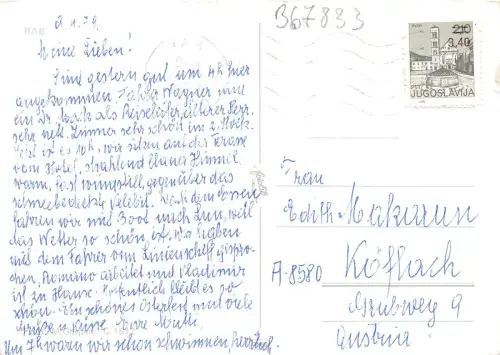 8.4.79
B67833
RAB
Meine Lieben!
Sind gestern gut um 4h hier
angekommen. Fahrer Wagner und
ein Dr. als Reiseleiter, älterer Herr,
sehr nett. Zimmer sehr schön im 2. Stock.
Jetzt ist es 10h, wir sitzen auf der Terasse
vom Hotel, strahlend blauer Himmel,
warm, fast windstill, gegenüber das
schneebedeckte Velebit. Nach dem Essen
fahren wir mit Boot nach, weil
das Wetter so schön ist. Wir haben
mit dem Fahrer vom Linienschiff gespro-
chen, Romano arbeitet und Vladimir
ist zu Hause. Hoffentlich bleibt es so
schön. Ein schönes Osterfest und viele
Grüße u. Küsse Eure Mutti
Um 7h waren wir schon schwimmen, herrlich.
2.10
3.40
JUGOSLAVIJA
Frau
Edith Makaun
A-8580 Köflach
Grubweg 9
Austria